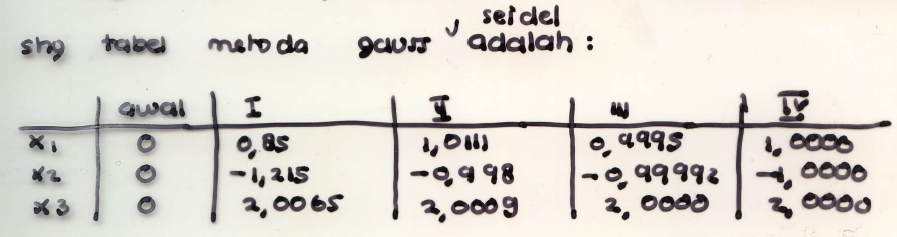 seidel
shg tabel metoda gauss ✓ adalah :
awal I II III IV
x1 0 0,85 1,0111 0,9995 1,0000
x2 0 -1,215 -0,998 -0,99992 -1,0000
x3 0 2,0065 2,0009 2,0000 2,0000